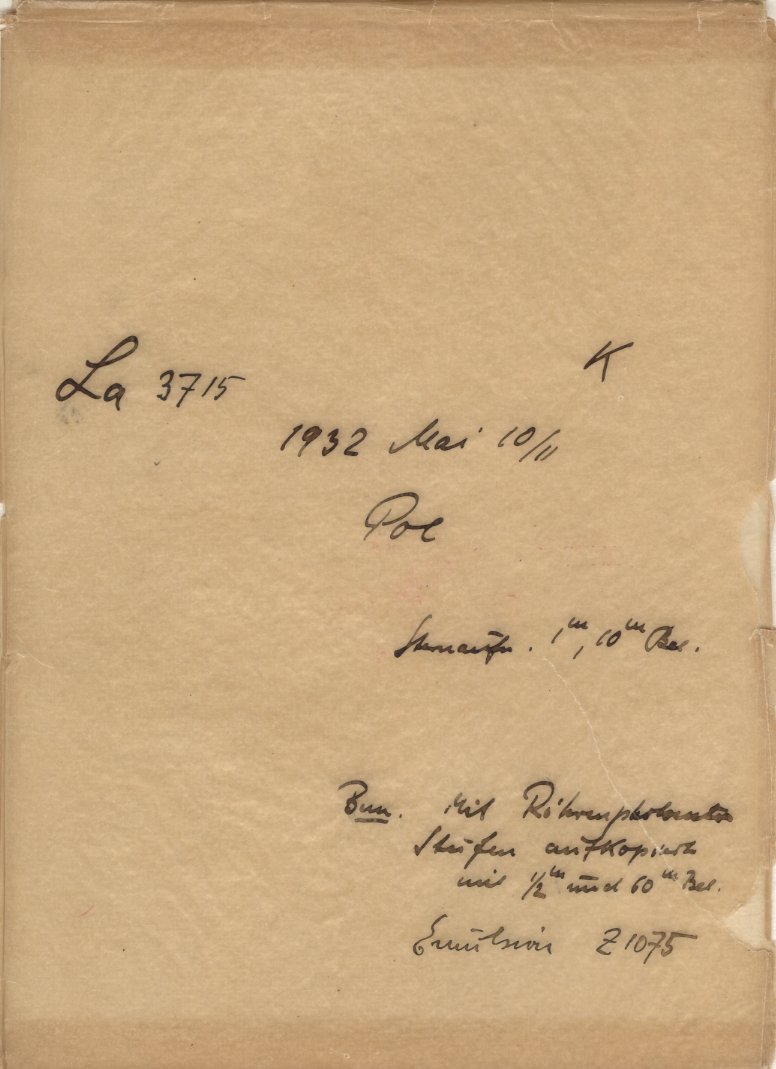 La 3715
K
1932 Mai 10/11
Pol
Sternaufn. 1ᵐ, 10ᵐ Bel.
Bem. Mit Röhrenphotometer
Stufen aufkopiert
mit 1/2ᵐ und 60ᵐ Bel.
Emulsion Z1075